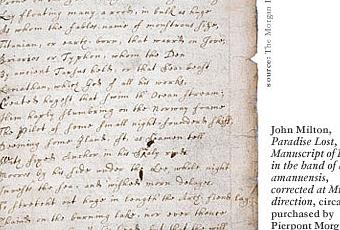 Ly floating many a rood, in bulk as huge
As whom the fables name of monstrous size,
Titanian, or earth-born that warrd on Jove,
Briarios or Typhon, whom the Den
By ancient Tarsus held, or that Sea-beast
Leviathan, which God of all his works
Created hugest that swim th' Ocean stream:
Him haply slumbring on the Norway foame
The Pilot of some small night-founderd skiff
Deeming some Iland, oft, as Seamen tell
With fixed Anchor in his skaly rind
Moores by his side under the Lee, while night
Invests the Sea, and wished morn delayes:
So stretcht out huge in length the Arch-fiend lay,
Chaind on the burning lake, nor ever thence
that the will
source: The Morgan
John Milton,
Paradise Lost,
Manuscript of
in the hand of
amanuensis,
corrected at
direction, circa
purchased by
Pierpont